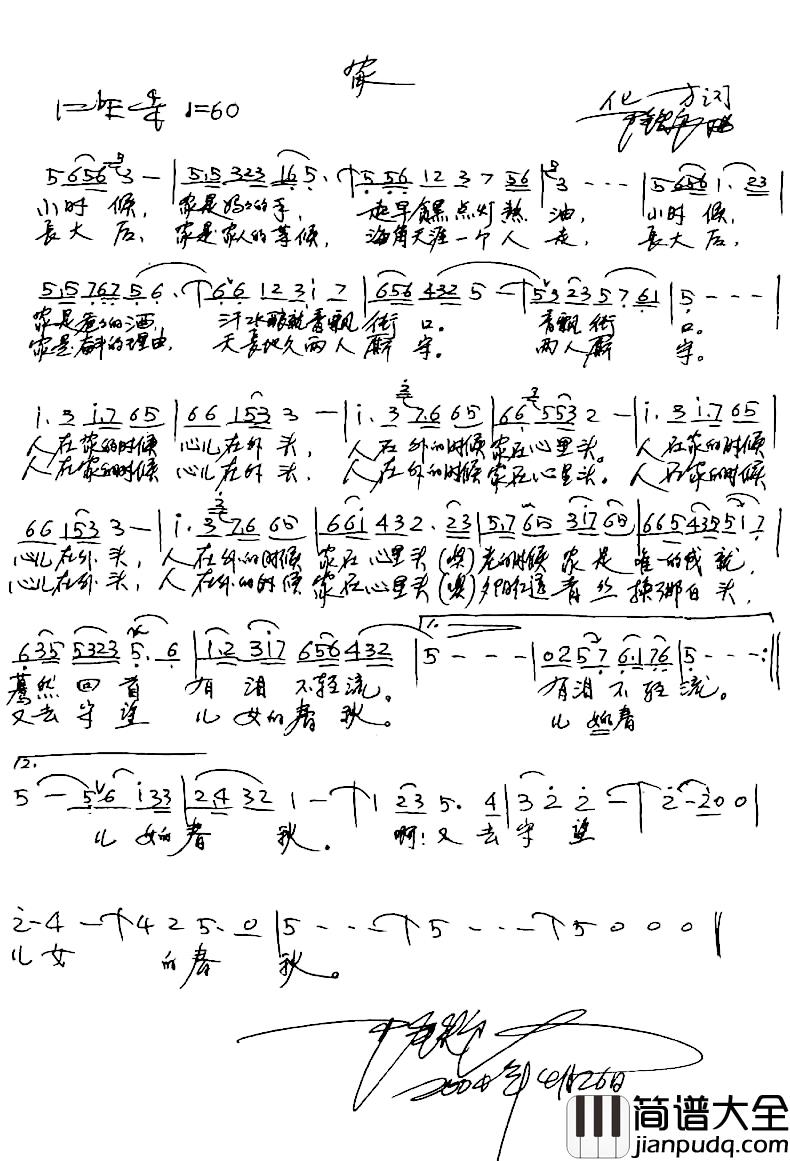 家
1=bE 4/4 ♩=60
词
曲
5 6 5 6 3 - | 5. 5 3 2 3 1 6 5. | 5 5 6 1 2 3 7 5 6 | 3 - - - | 5 6 5 6 1. 2 3
小时候, 家是妈妈的手, 走早贪黑点灯熬油, 小时候,
长大后, 家是家人的等候, 海角天涯一个人走, 长大后,
5. 5 7 6 7 5 6. | 6 6 1 2 3 1 7 | 6 5 6 4 3 2 5 - | 5 3 2 3 5 7 6 1 | 5 - - - |
家是爸爸的酒, 汗水酿就香飘街口。 香飘街口。
家是奋斗的理由, 天长地久两人厮守。 两人厮守。
1. 3 1. 7 6 5 | 6 6 1 5 3 3 - | 1. 3 7. 6 6 5 | 6 6 5 5 3 2 - | 1. 3 1. 7 6 5
人在家的时候 心儿在外头, 人在外的时候家在心里头。 人在家的时候
人在家的时候 心儿在外头, 人在外的时候家在心里头。 人在家的时候
6 6 1 5 3 3 - | 1. 3 7. 6 6 5 | 6 6 1 4 3 2. 2 3 | 5. 7 6 5 3 1 7 6 5 | 6 6 5 4 3 5 5 1 7
心儿在外头, 人在外的时候 家在心里头(噢)老的时候 家是唯一的成就,
心儿在外头, 人在外的时候 家在心里头(噢)夕阳红透 青丝换那白头,
6 3 5 5 3 2 3 5. 6 | 1. 2 3 1 7 6 5 6 4 3 2 | 1. 5 - - - | 0 2 5 7 6. 1 7 6 | 5 - - - :||
蓦然回首 有泪不轻流。 有泪不轻流。
又去守望 儿女的春秋。 儿女的春
2.
5 - 5 6 1 3 3 | 2. 4 3 2 1 - | 1 2 3 5. 4 | 3 2 2 - | 2 - 2 0 0 |
儿女的春秋。 啊!又去守望
2 - 4 - | 4 2 5. 0 | 5 - - - | 5 - - - | 5 0 0 0 ||
儿女的春秋。
2004年4月26日
简谱大全
jianpudq.com